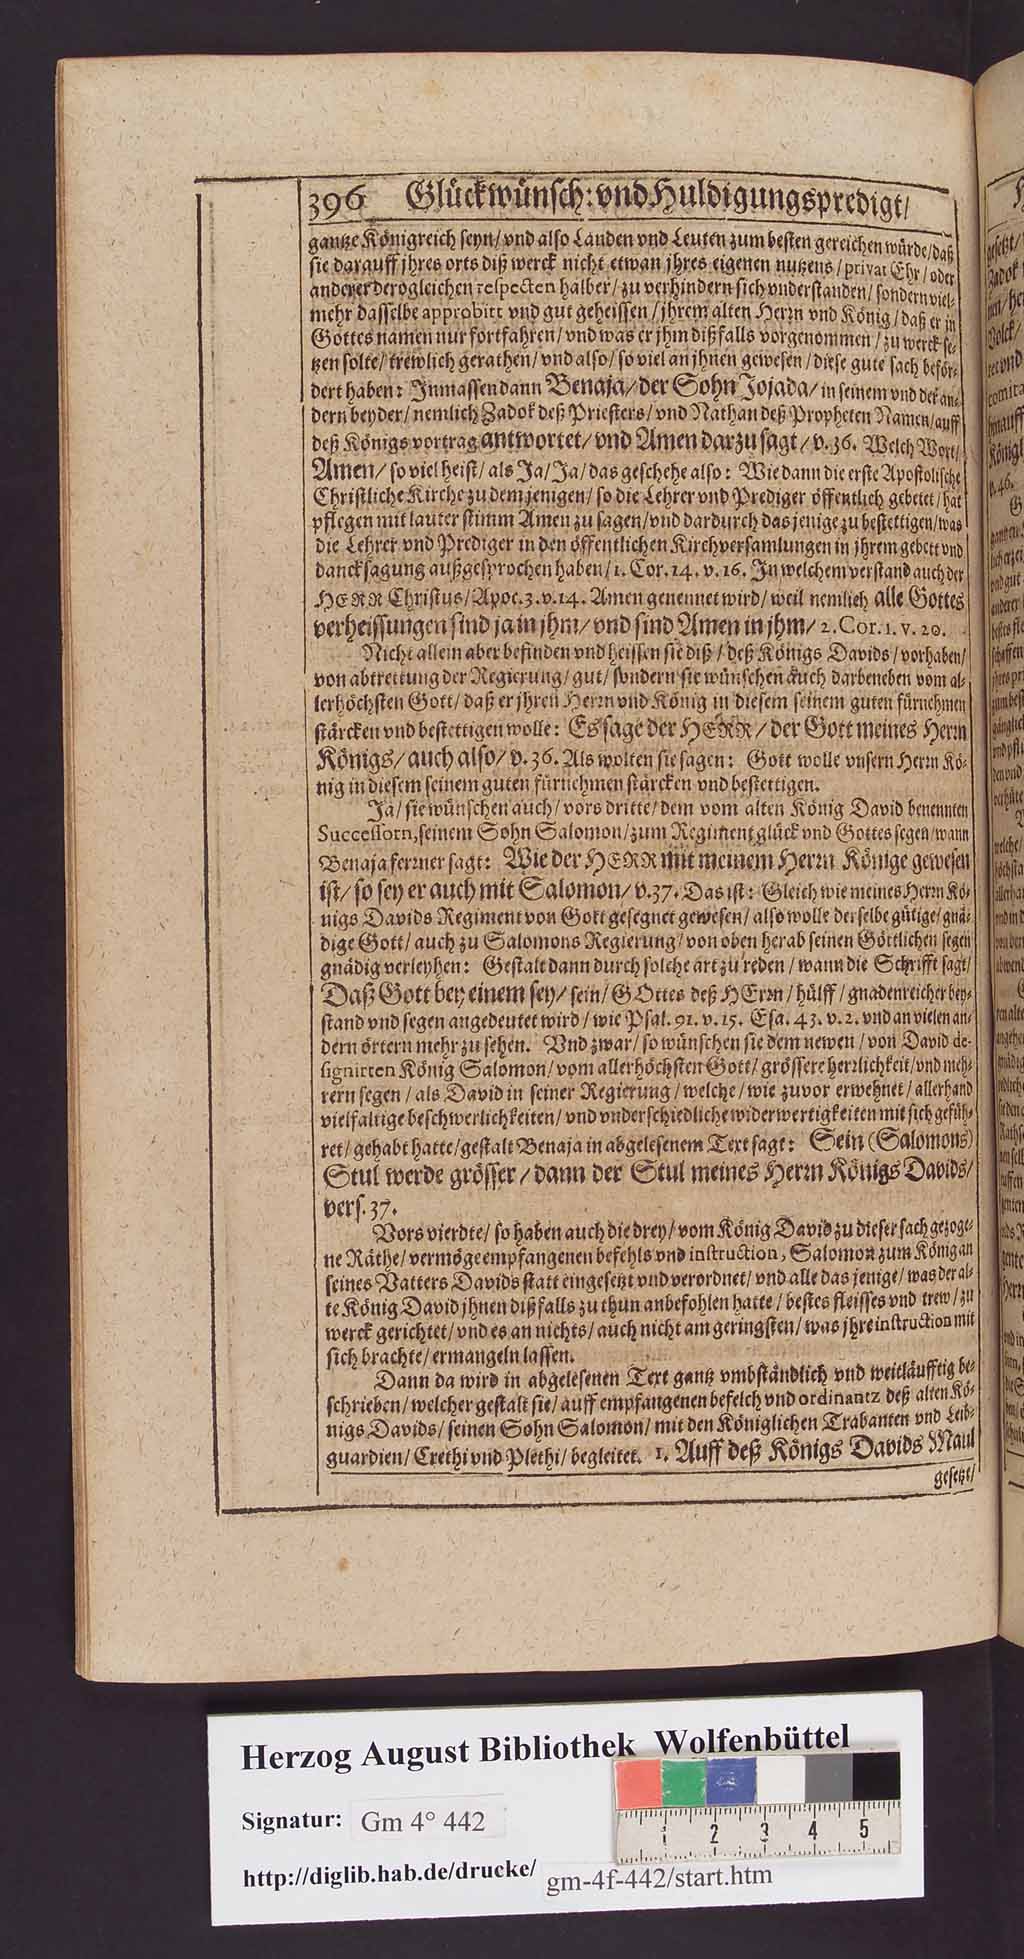 396 Glückwünsch: vnd Huldigungspredigt/
gantze Königreich seyn/ vnd also Landen vnd Leuten zum besten gereichen würde/ daß
sie darauff jhres orts diß werck nicht etwan jhres eigenen nutzens/ privat Ehr/ oder
anderer derogleichen respecten halber/ zu verhindern sich vnderstanden/ sondern viel-
mehr dasselbe approbirt vnd gut geheissen/ jhrem alten Herrn vnd König/ daß er in
Gottes namen nur fortfahren/ vnd was er jhm dißfalls vorgenommen/ zu werck se-
tzen solte/ trewlich gerathen/ vnd also/ so viel an jhnen gewesen/ diese gute sach beför-
dert haben: Inmassen dann Benaja/ der Sohn Jojada/ in seinem vnd der an-
dern beyder/ nemlich Zadok deß Priesters/ vnd Nathan deß Propheten Namen/ auff
deß Königs vortrag antwortet/ vnd Amen darzu sagt/ v. 36. Welch Wort/
Amen/ so viel heist/ als Ja/ Ja/ das geschehe also: Wie dann die erste Apostolische
Christliche Kirche zu dem jenigen/ so die Lehrer vnd Prediger öffentlich gebetet/ hat
pflegen mit lauter stimm Amen zu sagen/ vnd dardurch das jenige zu bestettigen/ was
die Lehrer vnd Prediger in den öffentlichen Kirchversamlungen in jhrem gebett vnd
dancksagung außgesprochen haben/ 1. Cor. 14. v. 16. In welchem verstand auch der
HERR Christus/ Apoc. 3. v. 14. Amen genennet wird/ weil nemlich alle Gottes
verheissungen sind ja in jhm/ vnd sind Amen in jhm/ 2. Cor. 1. v. 20.
Nicht allein aber befinden vnd heissen sie diß/ deß Königs Davids/ vorhaben/
von abtrettung der Regierung/ gut/ sondern sie wünschen auch darbeneben vom al-
lerhöchsten Gott/ daß er jhren Herrn vnd König in diesem seinem guten fürnehmen
stärcken vnd bestettigen wolle: Es sage der HERR/ der Gott meines Herrn
Königs/ auch also/ v. 36. Als wolten sie sagen: Gott wolle vnsern Herrn Kö-
nig in diesem seinem guten fürnehmen stärcken vnd bestettigen.
Ja/ sie wünschen auch/ vors dritte/ dem vom alten König David benennten
Successorn, seinem Sohn Salomon/ zum Regiment glück vnd Gottes segen/ wann
Benaja ferrner sagt: Wie der HERR mit meinem Herrn Könige gewesen
ist/ so sey er auch mit Salomon/ v. 37. Das ist: Gleich wie meines Herrn Kö-
nigs Davids Regiment von Gott gesegnet gewesen/ also wolle derselbe gütige/ gnä-
dige Gott/ auch zu Salomons Regierung/ von oben herab seinen Göttlichen segen
gnädig verleyhen: Gestalt dann durch solche art zu reden/ wann die Schrifft sagt/
Daß Gott bey einem sey/ sein/ GOttes deß HErrn/ hülff/ gnadenreicher bey-
stand vnd segen angedeutet wird/ wie Psal. 91. v. 15. Esa. 43. v. 2. vnd an vielen an-
dern örtern mehr zu sehen. Vnd zwar/ so wünschen sie dem newen/ von David de-
signirten König Salomon/ vom allerhöchsten Gott/ grössere herrlichkeit/ vnd meh-
rern segen/ als David in seiner Regierung/ welche/ wie zuvor erwehnet/ allerhand
vielfaltige beschwerlichkeiten/ vnd vnderschiedliche widerwertigkeiten mit sich gefüh-
ret/ gehabt hatte/ gestalt Benaja in abgelesenem Text sagt: Sein (Salomons)
Stul werde grösser/ dann der Stul meines Herrn Königs Davids/
vers. 37.
Vors vierdte/ so haben auch die drey/ vom König David zu dieser sach gezoge-
ne Räthe/ vermöge empfangenen befehls vnd instruction, Salomon zum König an
seines Vatters Davids statt eingesetzt vnd verordnet/ vnd alle das jenige/ was der al-
te König David jhnen dißfalls zu thun anbefohlen hatte/ bestes fleisses vnd trew/ zu
werck gerichtet/ vnd es an nichts/ auch nicht am geringsten/ was jhre instruction mit
sich brachte/ ermangeln lassen.
Dann da wird in abgelesenen Text gantz vmbständlich vnd weitläufftig be-
schrieben/ welcher gestalt sie/ auff empfangenen befelch vnd ordinantz deß alten Kö-
nigs Davids/ seinen Sohn Salomon/ mit den Königlichen Trabanten vnd Leib-
guardien/ Crethi vnd Plethi/ begleitet. 1. Auff deß Königs Davids Maul
gesetzt/
Herzog August Bibliothek Wolfenbüttel
Signatur: Gm 4° 442
http://diglib.hab.de/drucke/ gm-4f-442/start.htm
1 2 3 4 5